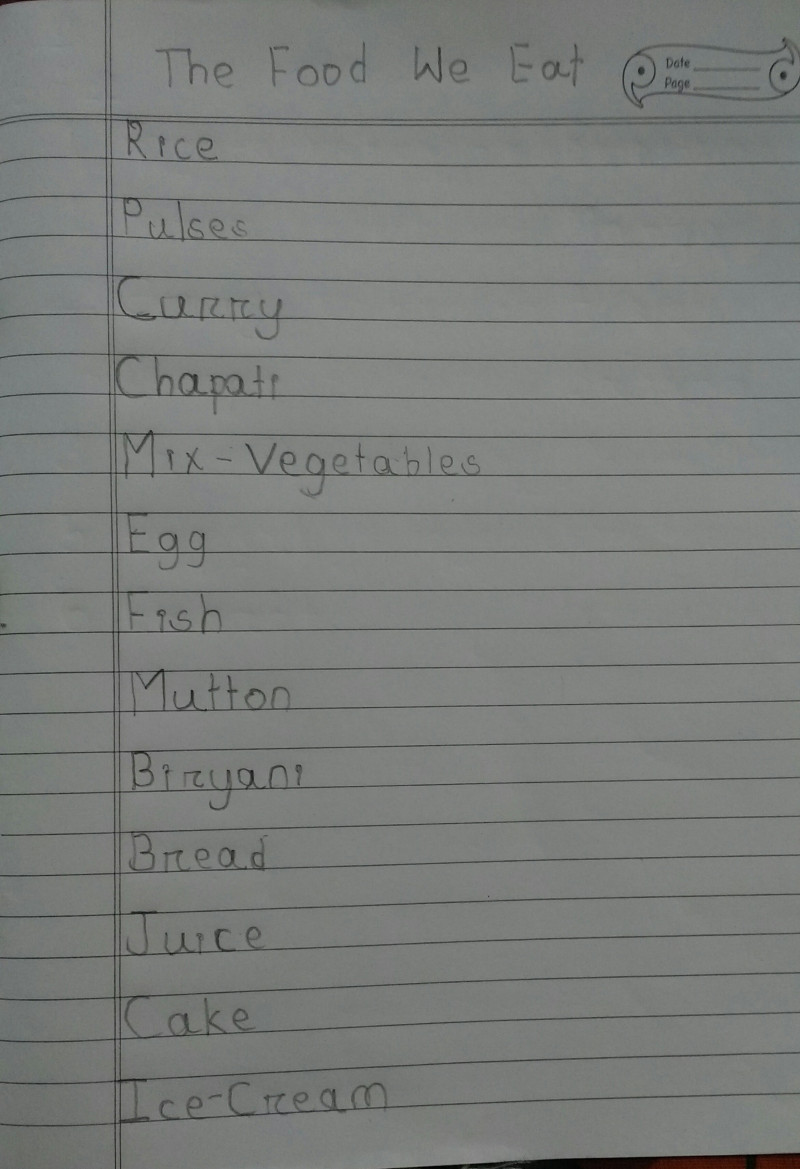 The Food We Eat
Date
Page
Rice
Pulses
Curry
Chapati
Mix-Vegetables
Egg
Fish
Mutton
Biryani
Bread
Juice
Cake
Ice-Cream